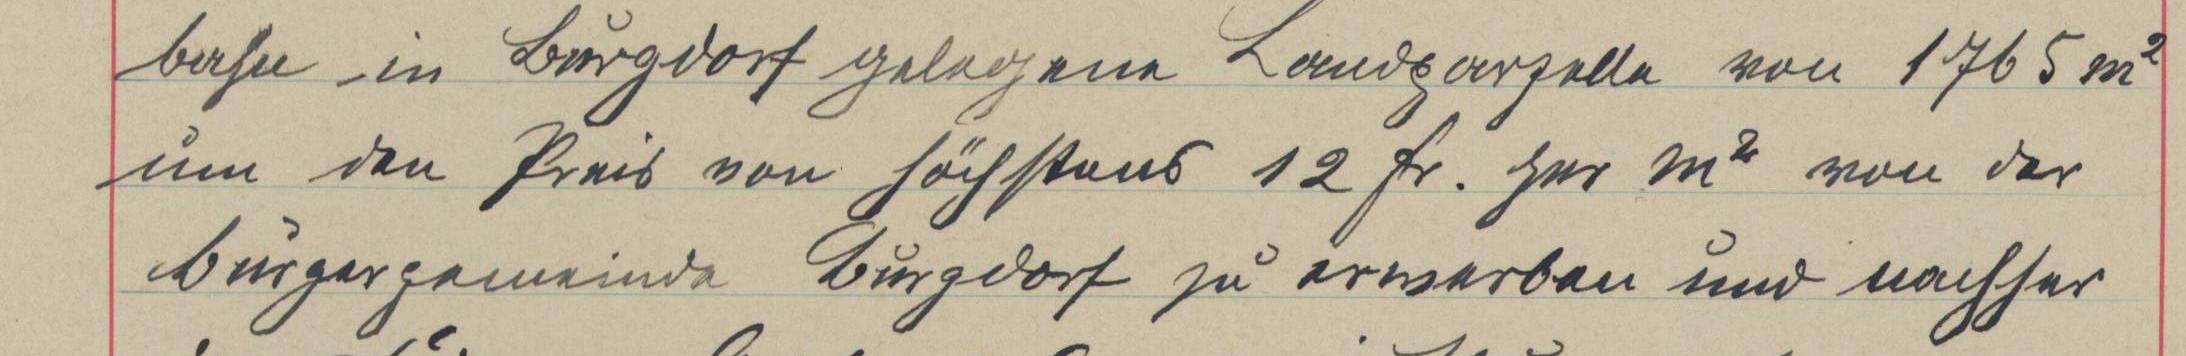 bahn in Burgdorf gelegene Landparzelle von 1765 m²
um den Preis von höchstens 12 fr. per m² von der
Burgergemeinde Burgdorf zu erwerben und nachher